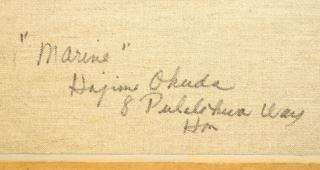 "Marine"
Hajime Okuda
8 Way
Hon